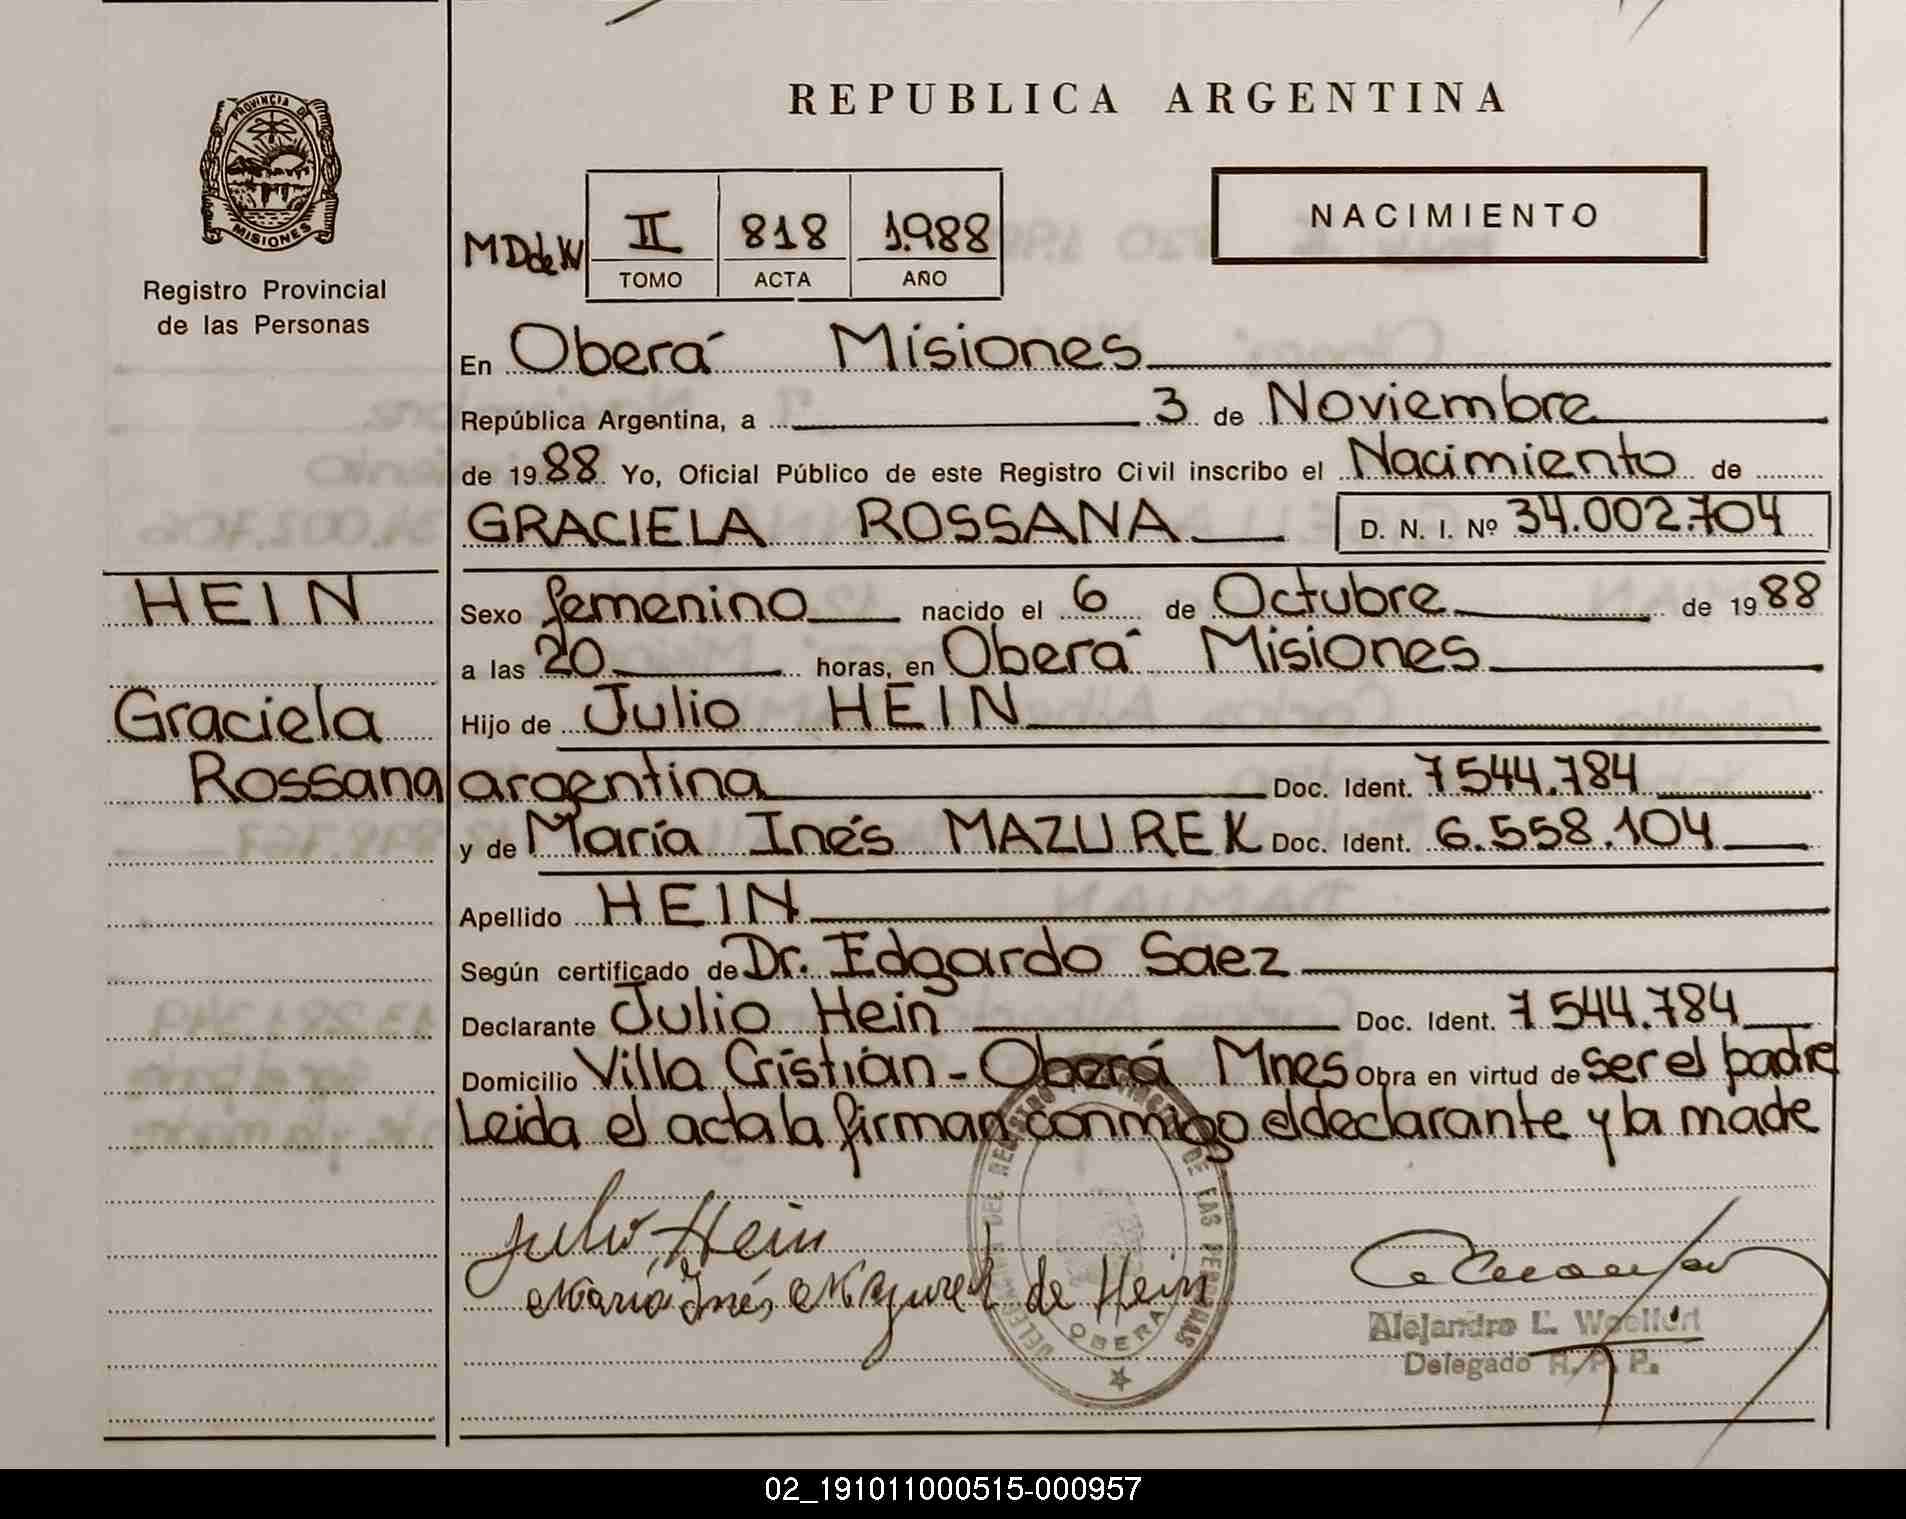 REPUBLICA ARGENTINA
PROVINCIA DE
MISIONES
Registro Provincial
de las Personas
NACIMIENTO
MDdeN II 818 1.988
TOMO ACTA AÑO
En Oberá Misiones
República Argentina, a 3 de Noviembre
de 1988 Yo, Oficial Público de este Registro Civil inscribo el Nacimiento de
GRACIELA ROSSANA D. N. I. Nº 34.002.704
HEIN
Graciela
Rossana
Sexo femenino nacido el 6 de Octubre de 1988
a las 20 horas, en Oberá Misiones
Hijo de Julio HEIN
argentina Doc. Ident. 7544.784
y de María Inés MAZUREK Doc. Ident. 6.558.104
Apellido HEIN
Según certificado de Dr. Edgardo Saez
Declarante Julio Hein Doc. Ident. 7544.784
Domicilio Villa Cristián - Oberá Mnes Obra en virtud de ser el padre
Leida el acta la firman conmigo el declarante y la made
Julio Hein
María Inés Mazurek de Hein
DELEGACION DEL REGISTRO PROVINCIAL DE LAS PERSONAS
OBERA
Alejandro L.
Delegado R. P. P.
02_191011000515-000957